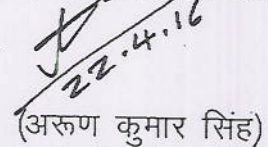 22.4.16
(अरूण कुमार सिंह)